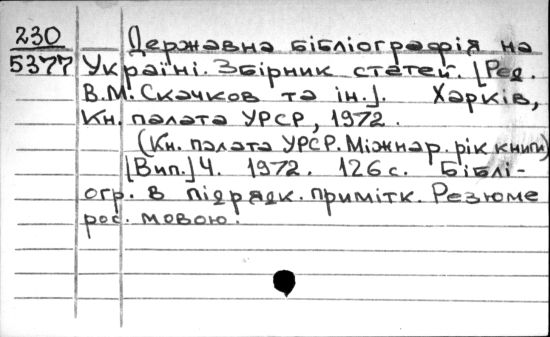 230
5377
Державна бібліографія на
Україні. Збірник статей. [Ред.
В.М. Скачков та ін.]. Харків,
Кн. палата УРСР, 1972.
(Кн. палата УРСР. Міжнар. рік книги)
[Вип.] 4. 1972. 126 с. Біблі-
огр. в підрядк. примітк. Резюме
рос. мовою.